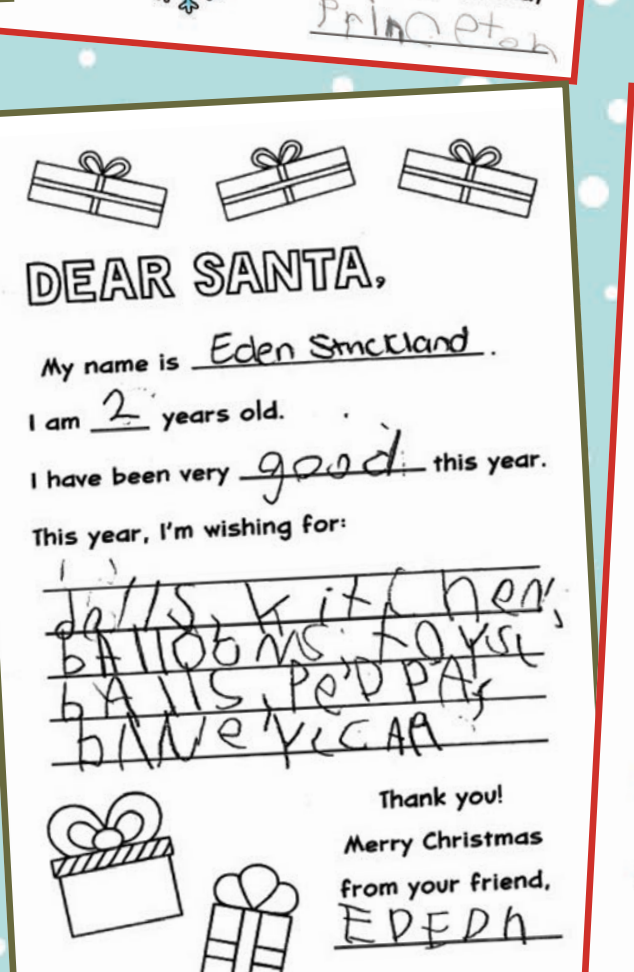 Princeton
DEAR SANTA,
My name is Eden Strickland.
I am 2 years old.
I have been very good this year.
This year, I'm wishing for:
dolls, kitchen,
bAlloons, toys,
bAlls, Pe'DPPA,
Thank you!
Merry Christmas
from your friend,
EDEDn